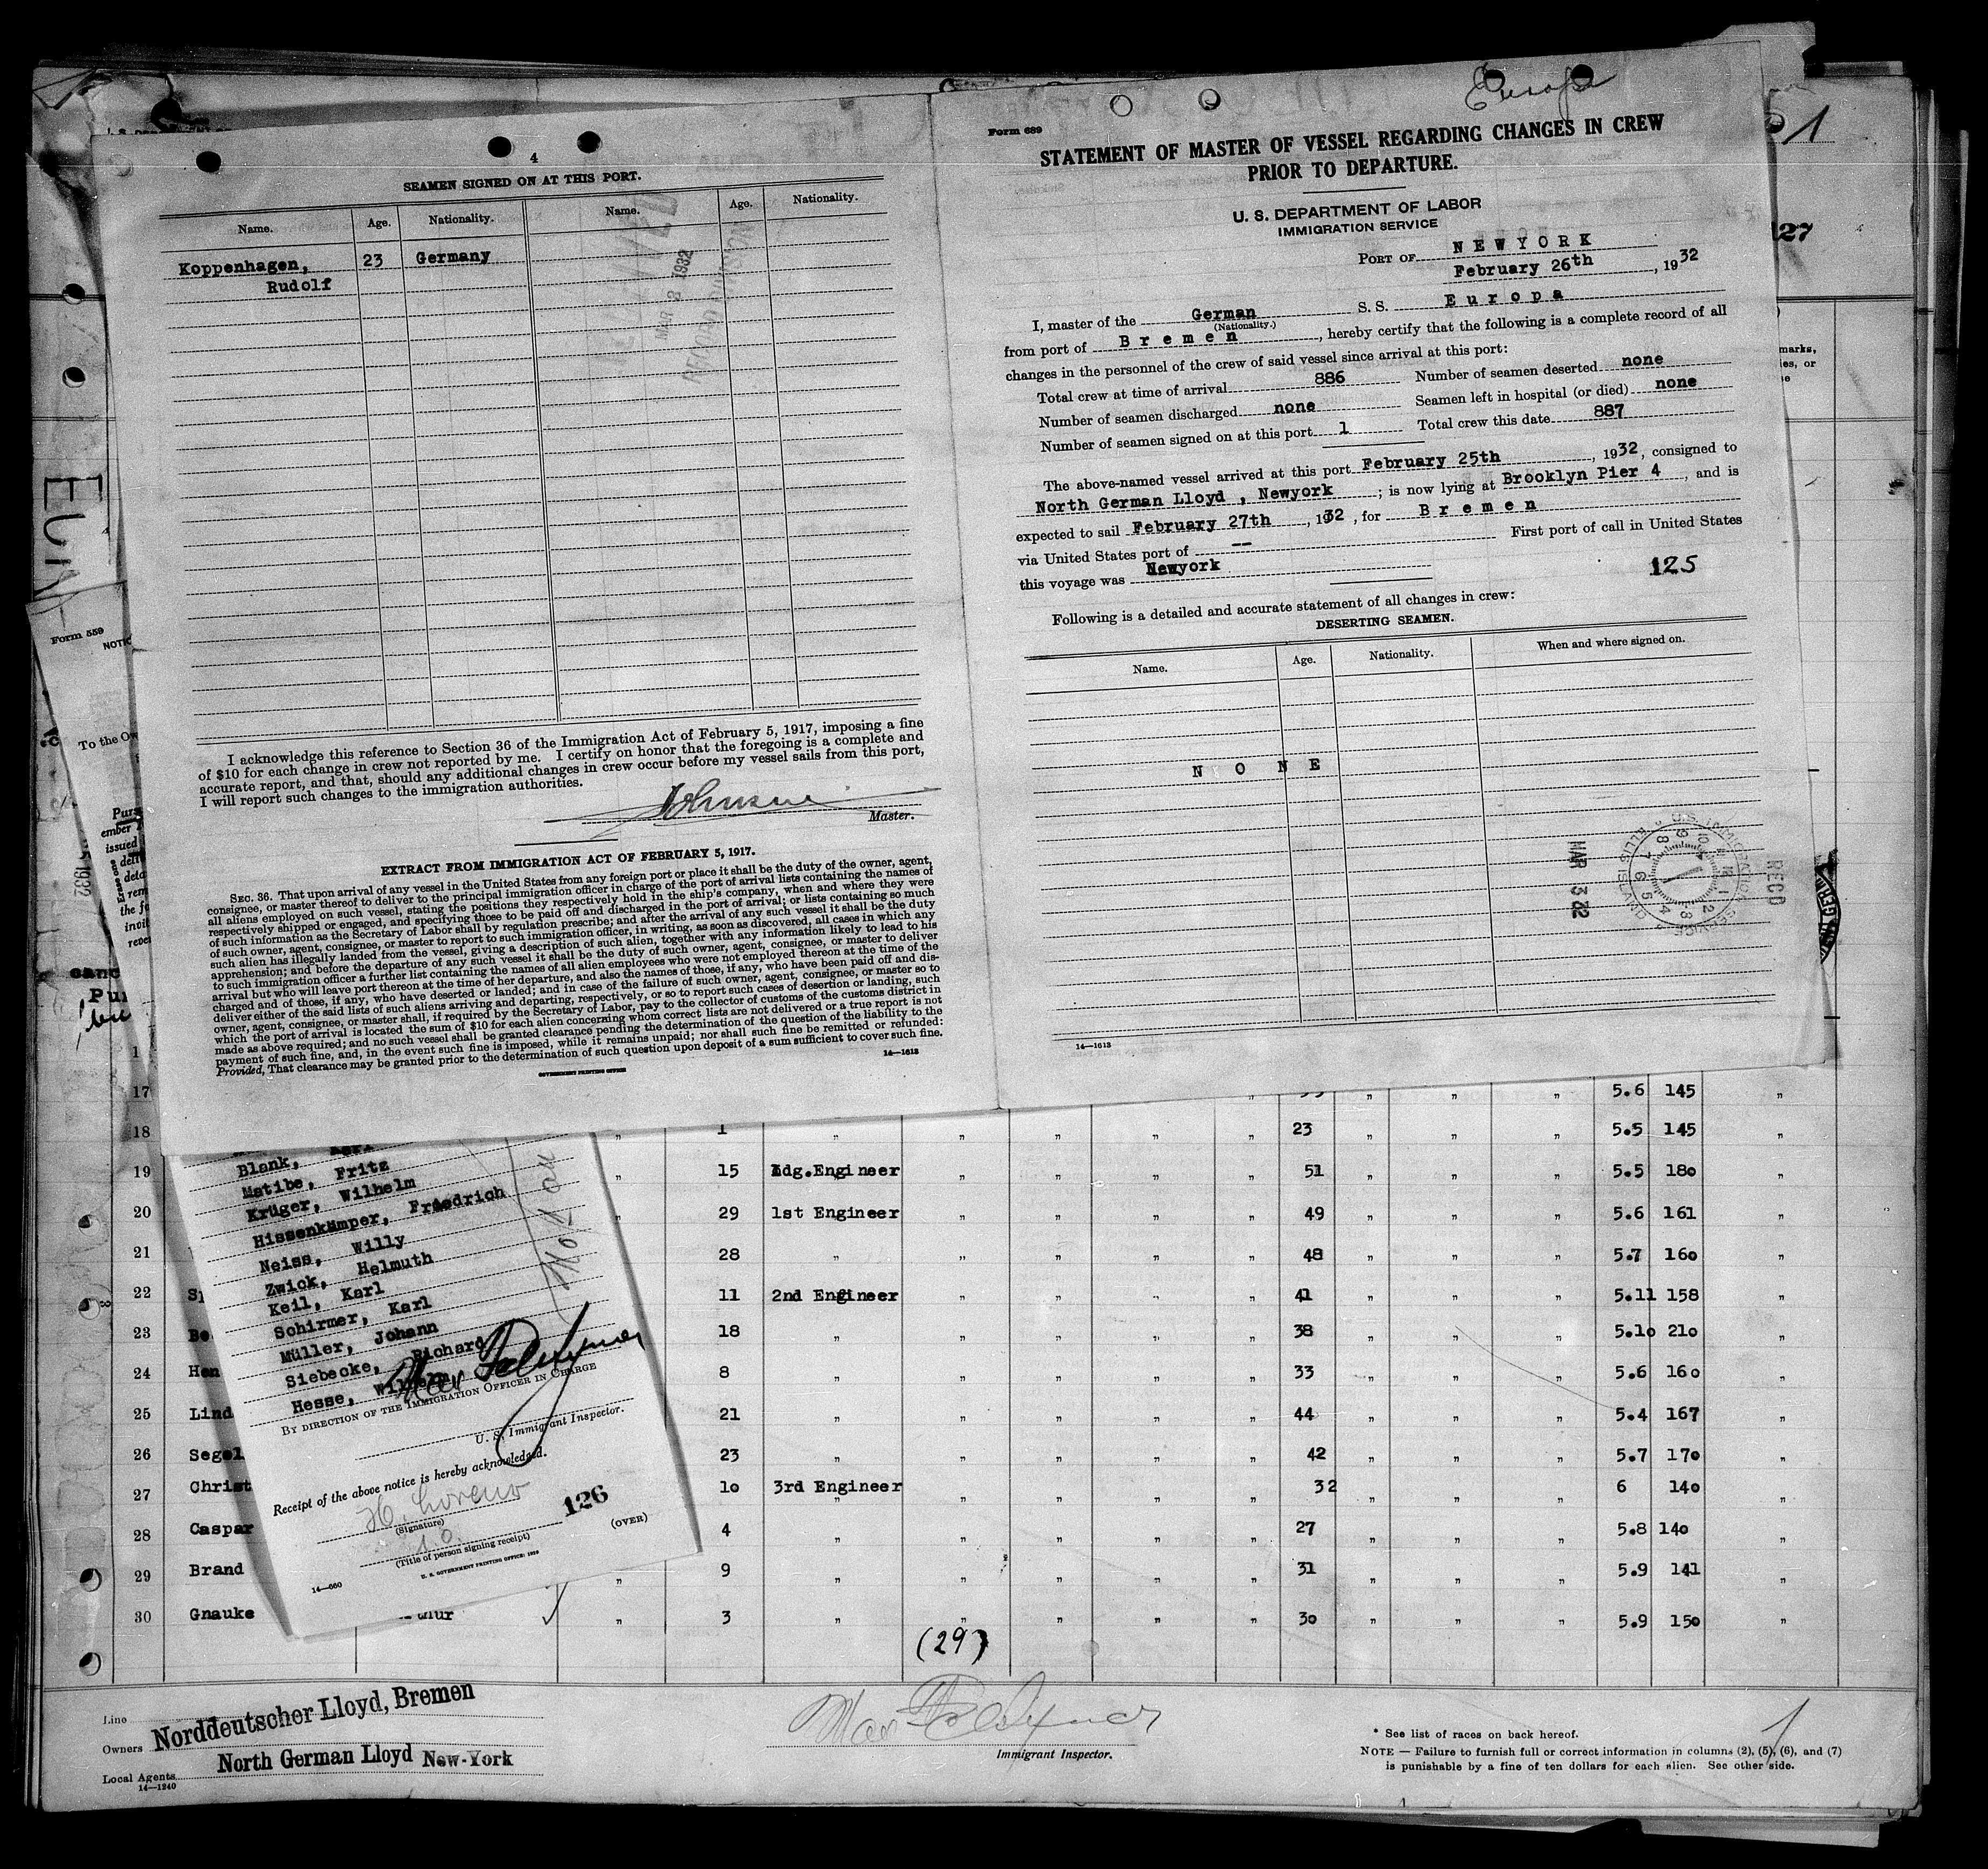 4
SEAMEN SIGNED ON AT THIS PORT.
Name. Age. Nationality. Name. Age. Nationality.
Koppenhagen, 23 Germany
Rudolf
MAR 3 1932
I acknowledge this reference to Section 36 of the Immigration Act of February 5, 1917, imposing a fine
of $10 for each change in crew not reported by me. I certify on honor that the foregoing is a complete and
accurate report, and that, should any additional changes in crew occur before my vessel sails from this port,
I will report such changes to the immigration authorities.
Master.
EXTRACT FROM IMMIGRATION ACT OF FEBRUARY 5, 1917.
SEC. 36. That upon arrival of any vessel in the United States from any foreign port or place it shall be the duty of the owner, agent,
consignee, or master thereof to deliver to the principal immigration officer in charge of the port of arrival lists containing the names of
all aliens employed on such vessel, stating the positions they respectively hold in the ship's company, when and where they were
respectively shipped or engaged, and specifying those to be paid off and discharged in the port of arrival; or lists containing so much
of such information as the Secretary of Labor shall by regulation prescribe; and after the arrival of any such vessel it shall be the duty
of such owner, agent, consignee, or master to report to such immigration officer, in writing, as soon as discovered, all cases in which any
such alien has illegally landed from the vessel, giving a description of such alien, together with any information likely to lead to his
apprehension; and before the departure of any such vessel it shall be the duty of such owner, agent, consignee, or master to deliver
to such immigration officer a further list containing the names of all alien employees who were not employed thereon at the time of the
arrival but who will leave port thereon at the time of her departure, and also the names of those, if any, who have been paid off and dis-
charged and of those, if any, who have deserted or landed; and in case of the failure of such owner, agent, consignee, or master so to
deliver either of the said lists of such aliens arriving and departing, respectively, or so to report such cases of desertion or landing, such
owner, agent, consignee, or master shall, if required by the Secretary of Labor, pay to the collector of customs of the customs district in
which the port of arrival is located the sum of $10 for each alien concerning whom correct lists are not delivered or a true report is not
made as above required; and no such vessel shall be granted clearance pending the determination of the question of the liability to the
payment of such fine, and, in the event such fine is imposed, while it remains unpaid; nor shall such fine be remitted or refunded:
Provided, That clearance may be granted prior to the determination of such question upon deposit of a sum sufficient to cover such fine.
14—1613
GOVERNMENT PRINTING OFFICE
Europa
Form 689
STATEMENT OF MASTER OF VESSEL REGARDING CHANGES IN CREW
PRIOR TO DEPARTURE.
U. S. DEPARTMENT OF LABOR
IMMIGRATION SERVICE
PORT OF NEWYORK
February 26th, 1932
I, master of the German S. S. Europa
(Nationality.)
from port of Bremen, hereby certify that the following is a complete record of all
changes in the personnel of the crew of said vessel since arrival at this port:
Total crew at time of arrival 886 Number of seamen deserted none
Number of seamen discharged none Seamen left in hospital (or died) none
Number of seamen signed on at this port 1 Total crew this date 887
The above-named vessel arrived at this port February 25th, 1932, consigned to
North German Lloyd , Newyork ; is now lying at Brooklyn Pier 4, and is
expected to sail February 27th, 1932, for Bremen
via United States port of -- First port of call in United States
this voyage was Newyork
125
Following is a detailed and accurate statement of all changes in crew:
DESERTING SEAMEN.
Name. Age. Nationality. When and where signed on.
NONE
REC'D
U.S. IMMIGRATION SERVICE ELLIS ISLAND
MAR 3 32
14—1613
1
127
marks,
es, or
EUR
Form 559
NOTIC
To the Ow
Purs
ember
issued
deli
deta
rem
the fo
invit
reve
Erase one
1932
canc
Pur
17 5.6 145 "
18 " 1 " " " " " 23 " " " 5.5 145 "
19 " 15 Ldg.Engineer " " " " 51 " " " 5.5 180 "
20 " 29 1st Engineer " " " " 49 " " " 5.6 161 "
21 28 " " " " " 48 " " " 5.7 160 "
22 Sp 11 2nd Engineer " " " " 41 " " " 5.11 158 "
23 Be 18 " " " " " 38 " " " 5.10 210 "
24 Hen 8 " " " " " 33 " " " 5.6 160 "
25 Lind 21 " " " " " 44 " " " 5.4 167 "
26 Segel 23 " " " " " 42 " " " 5.7 170 "
27 Christ 10 3rd Engineer " " " " 32 " " " 6 140 "
28 Caspar 4 " " " " " 27 " " " 5.8 140 "
29 Brand " 9 " " " " " 31 " " " 5.9 141 "
30 Gnauke " 3 " " " " " 30 " " " 5.9 150 "
(29)
Blank,
Matibe, Fritz
Krüger, Wilhelm
Hissenkämper, Friedrich
Neiss, Willy
Zwick, Helmuth
Keil, Karl
Schirmer, Karl
Müller, Johann
Siebecke, Richard
Hesse, Wilhelm,
BY DIRECTION OF THE IMMIGRATION OFFICER IN CHARGE
U. S. Immigrant Inspector.
Receipt of the above notice is hereby acknowledged.
(Signature)
126
(Title of person signing receipt)
(OVER)
14—660
U. S. GOVERNMENT PRINTING OFFICE
Line
Owners Norddeutscher Lloyd, Bremen
Local Agents North German Lloyd New-York
14—1240
Immigrant Inspector.
* See list of races on back hereof.
NOTE — Failure to furnish full or correct information in columns (2), (5), (6), and (7)
is punishable by a fine of ten dollars for each alien. See other side.